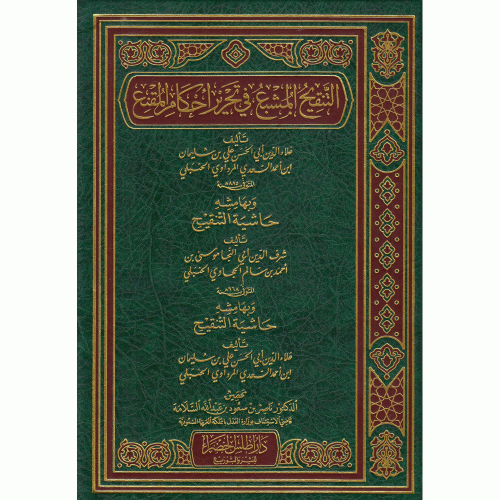 التنقيح المشبع في تحرير أحكام المقنع
تأليف
علاء الدين أبي الحسن علي بن سليمان
ابن أحمد السعدي المرداوي الحنبلي
المتوفى سنة ٨٨٥هـ
وبهامشه
حاشية التنقيح
تأليف
شرف الدين أبي النجا موسى بن
أحمد بن سالم الحجاوي الحنبلي
المتوفى سنة ٩٦٨هـ
وبهامشه
حاشية التنقيح
تأليف
علاء الدين أبي الحسن علي بن سليمان
ابن أحمد السعدي المرداوي الحنبلي
تحقيق
الدكتور ناصر بن سعود بن عبد الله السلامة
قاضي الاستئناف بوزارة العدل بالمملكة العربية السعودية
دار أطلس الخضراء
للنشر والتوزيع